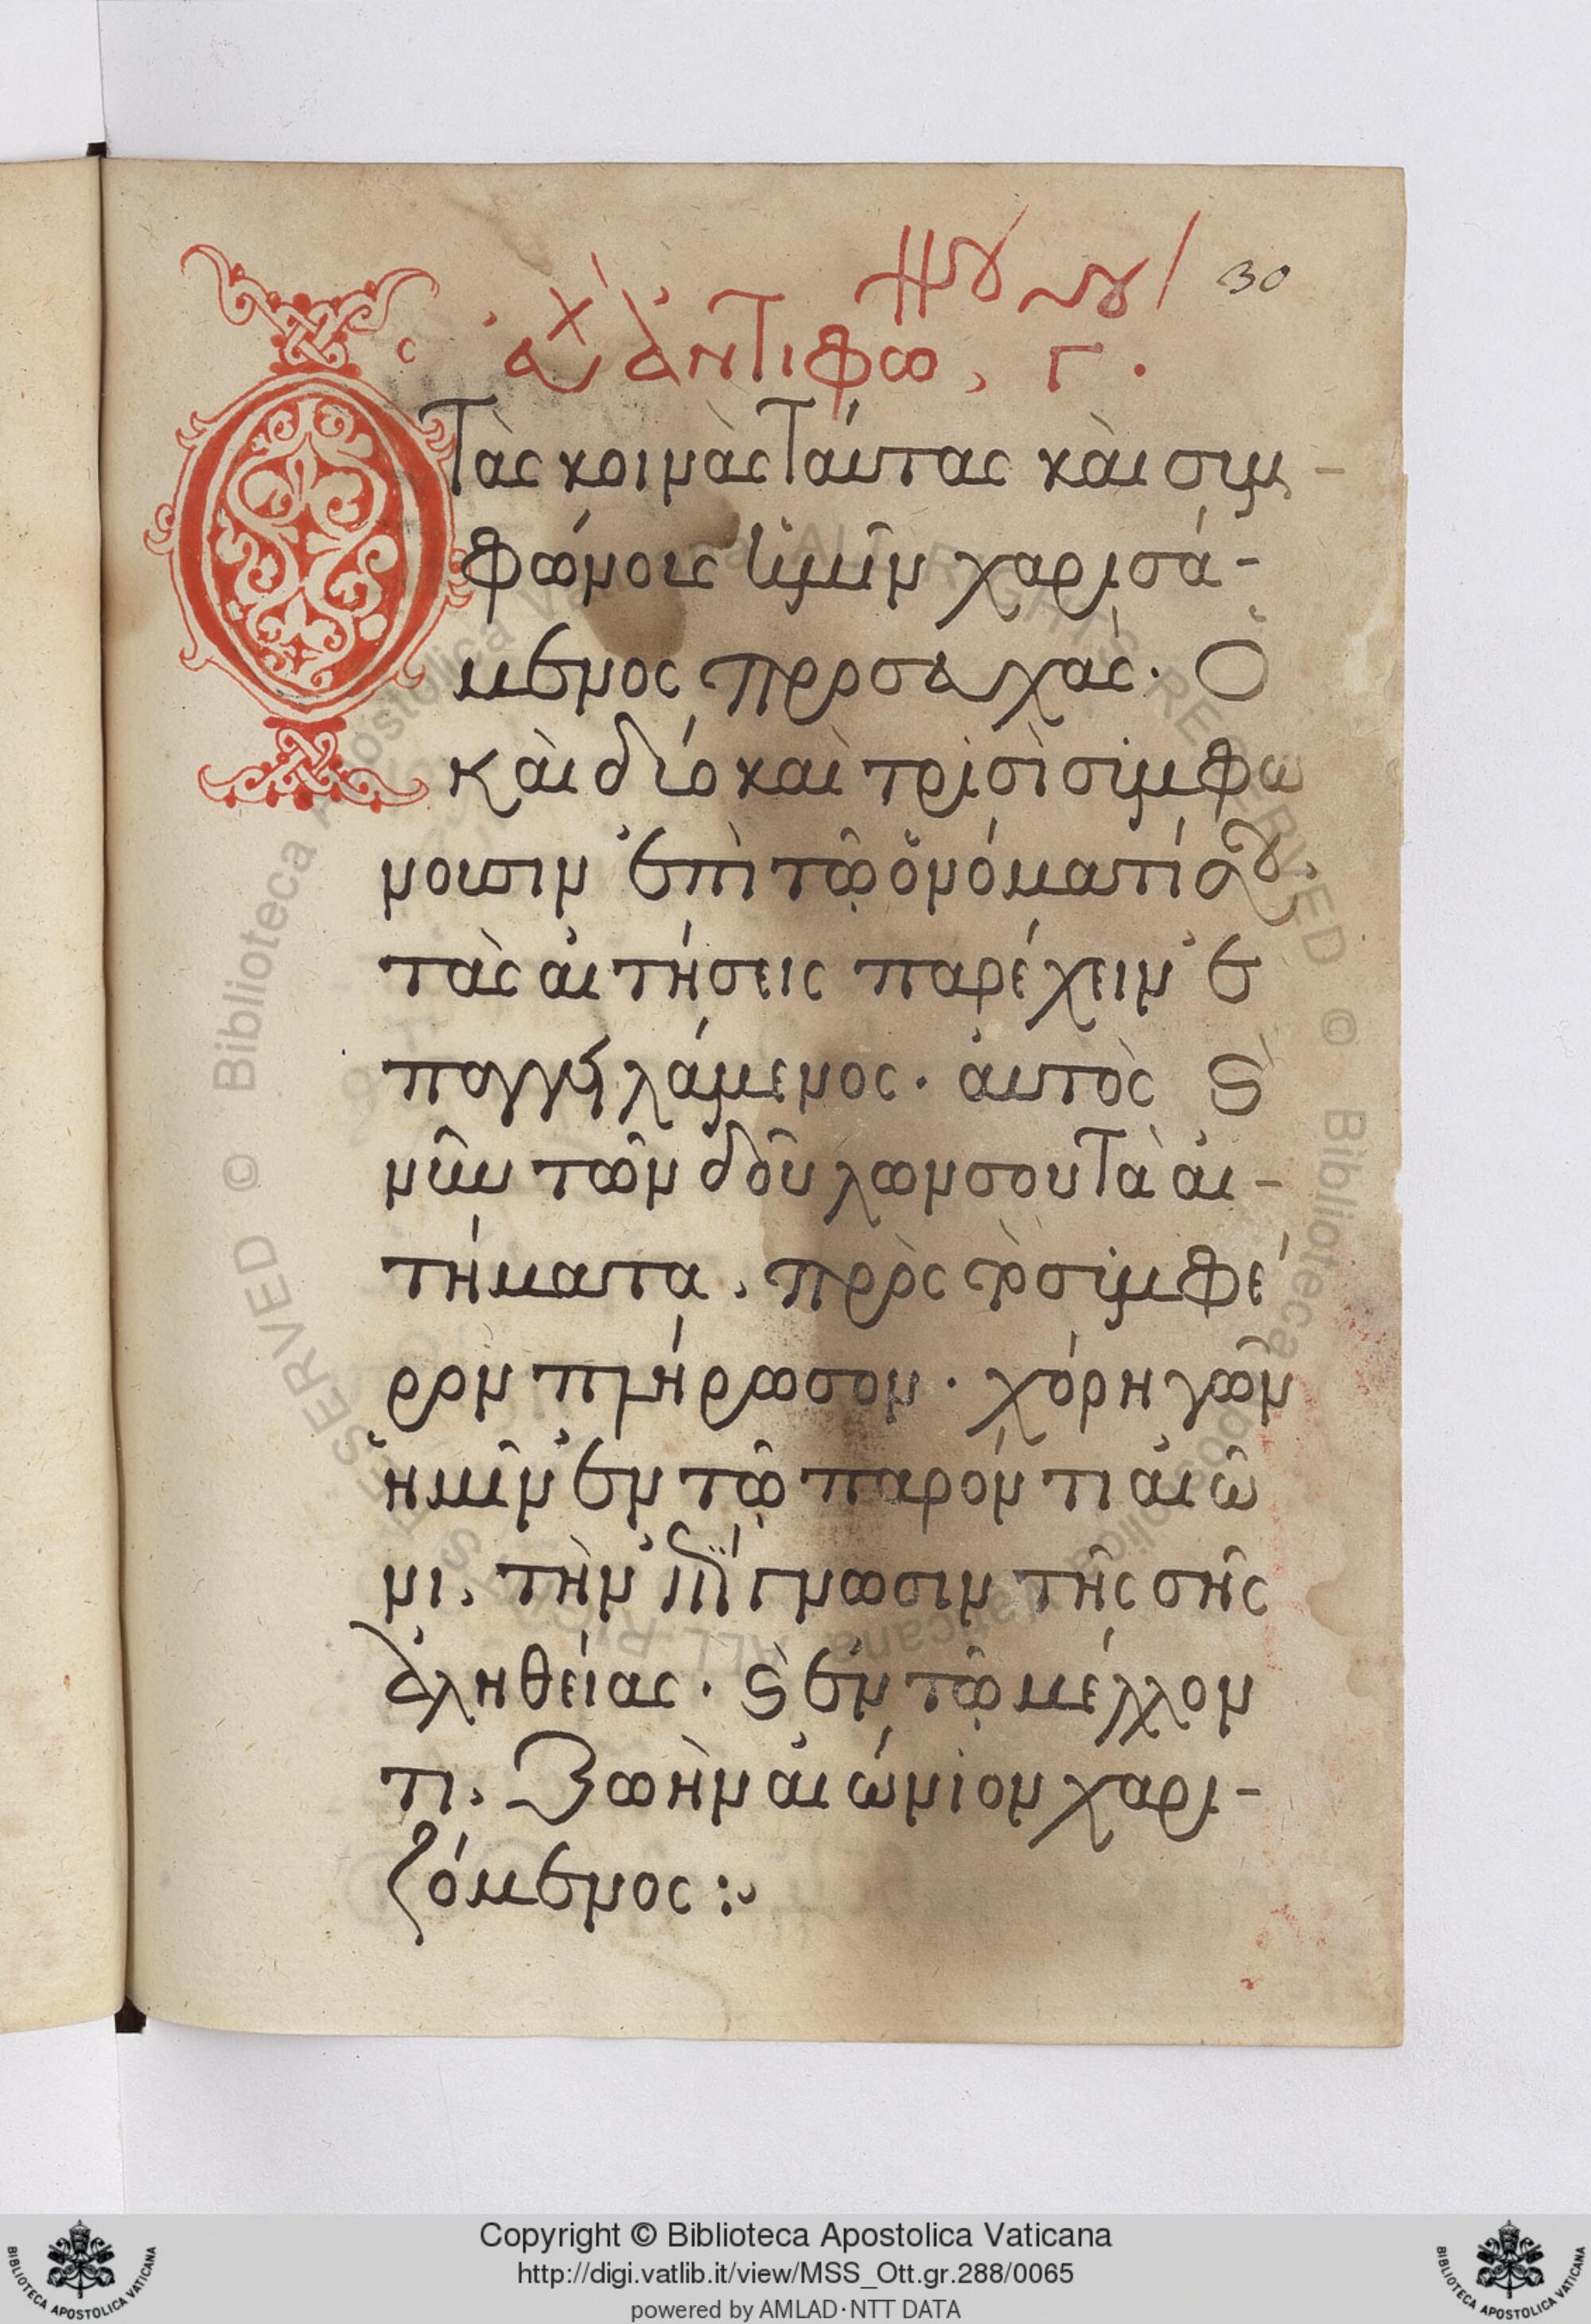 30
εὐχ ἀντιφω, Γ.
Ὁ Τὰς κοινὰς Ταύτας καὶ συμ-
φώνους ἡμῖν χαρισά-
μενος προσευχάς. Ὁ
καὶ δύο καὶ τρισὶ συμφω
νοῦσιν ἐπὶ τῷ ὀνόματί σου,
τὰς αἰτήσεις παρέχειν ἐ
παγγειλάμενος. αὐτὸς καὶ
νῦν τῶν δούλων σου Τὰ αἰ-
τήματα, πρὸς τὸ συμφέ
ρον πλήρωσον. χορηγῶν
ἡμῖν ἐν τῷ παρόντι αἰῶ
νι, τὴν ἐπίγνωσιν τῆς σῆς
ἀληθείας. καὶ ἐν τῷ μέλλον
τι, ζωὴν αἰώνιον χαρι-
ζόμενος :~
© Biblioteca Apostolica Vaticana ALL RIGHTS RESERVED
Copyright © Biblioteca Apostolica Vaticana
http://digi.vatlib.it/view/MSS_Ott.gr.288/0065
powered by AMLAD·NTT DATA
BIBLIOTECA APOSTOLICA VATICANA
BIBLIOTECA APOSTOLICA VATICANA